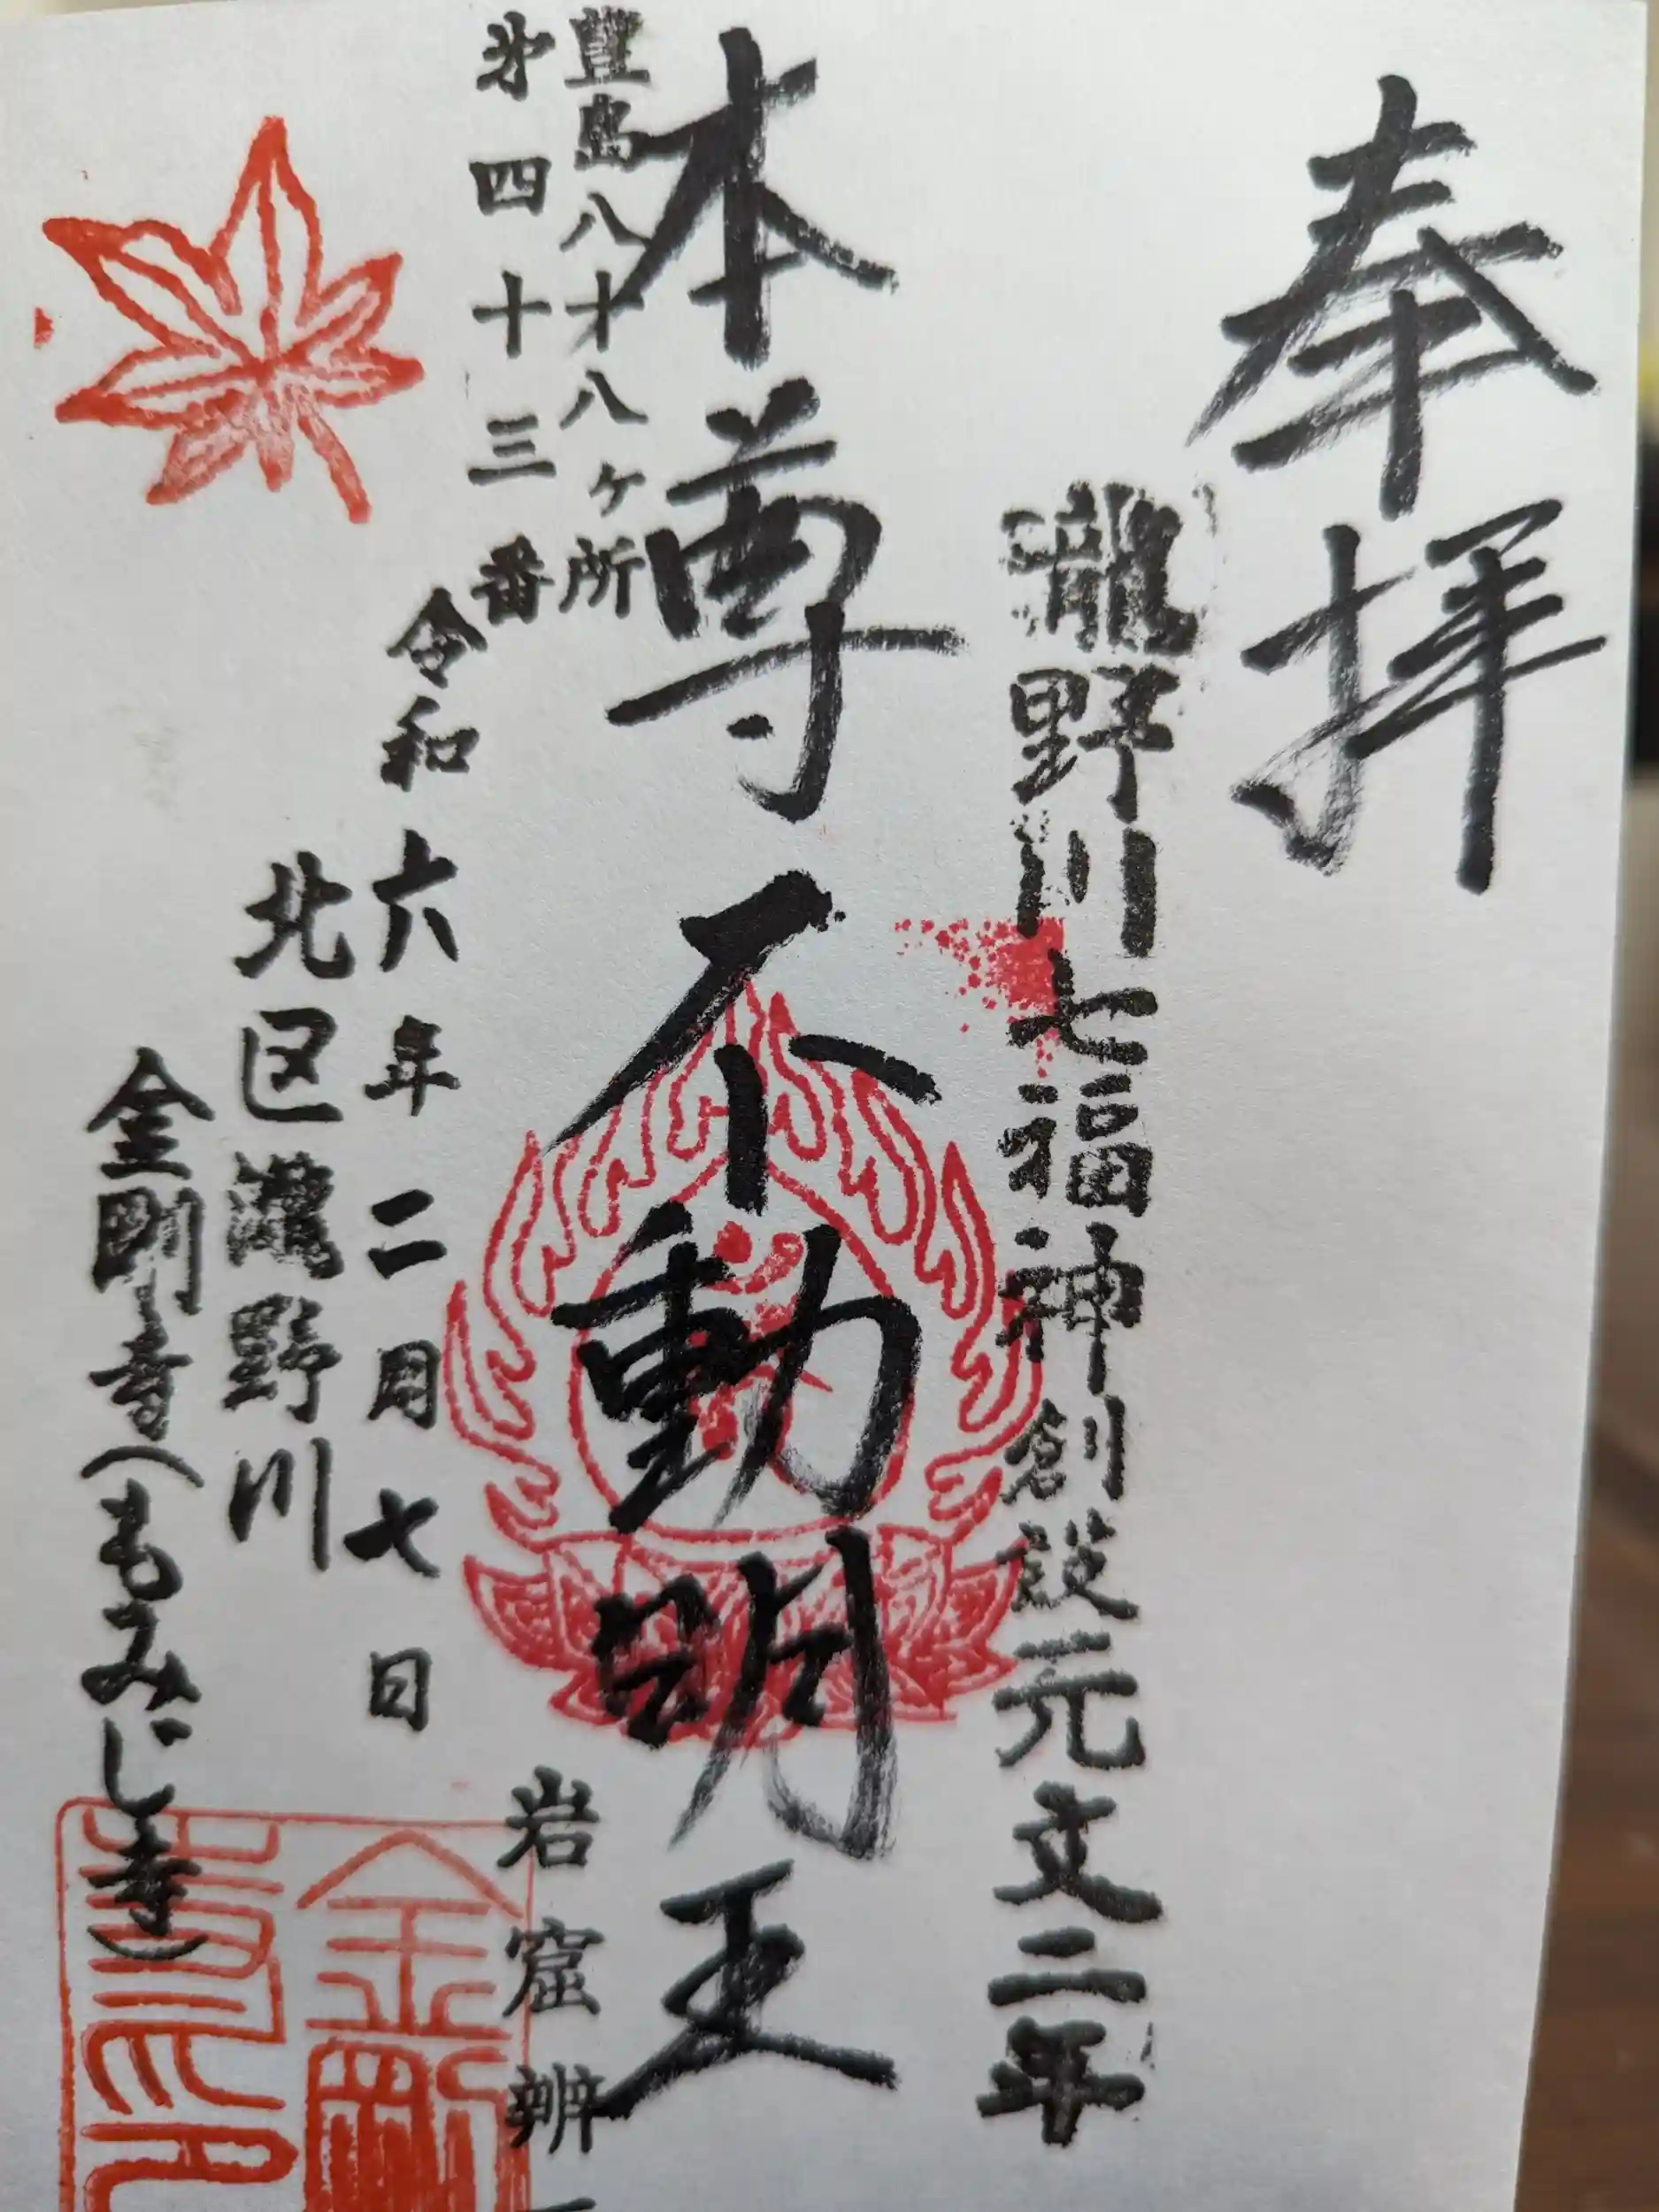 奉拝
瀧野川七福神創設元文二年
本尊不動明王
豊島八十八ヶ所
岩窟辨
第四十三番
令和六年二月七日
北区瀧野川
金剛寺(もみじ寺)
金剛
寺印